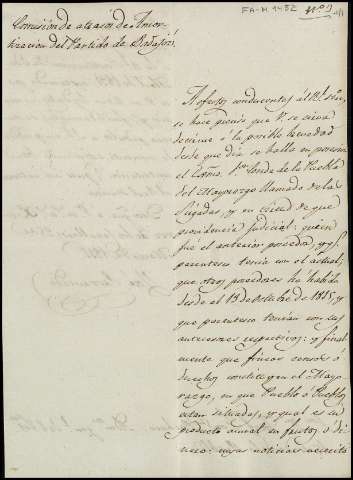 FA-M.1432
Nº 3
Comision de atrasos de Amor-
tizacion del Partido de Badajoz.
A efectos conducentes al Rl. servo.
se hace preciso que V. se sirva
decirme á la posible brevedad
desde que dia se halla en posesion
el Exmo. Sor. Conde de la Puebla
del Mayorazgo llamado de las
Tejadas, y en virtud de que
providencia judicial: quien
fué el anterior poseedor, y q.
parentesco tenia con el actual;
que otros poseedores ha habido
desde el 13 de Octubre de 1815, y
que parentesco tenian con sus
antecesores respectivos: y final-
mente que fincas censos ó
derechos constituyen el Mayo-
razgo, en que Pueblo ó Pueblos
estan situados, y qual es su
producto anual en frutos ó di-
nero: cuyas noticias necesito